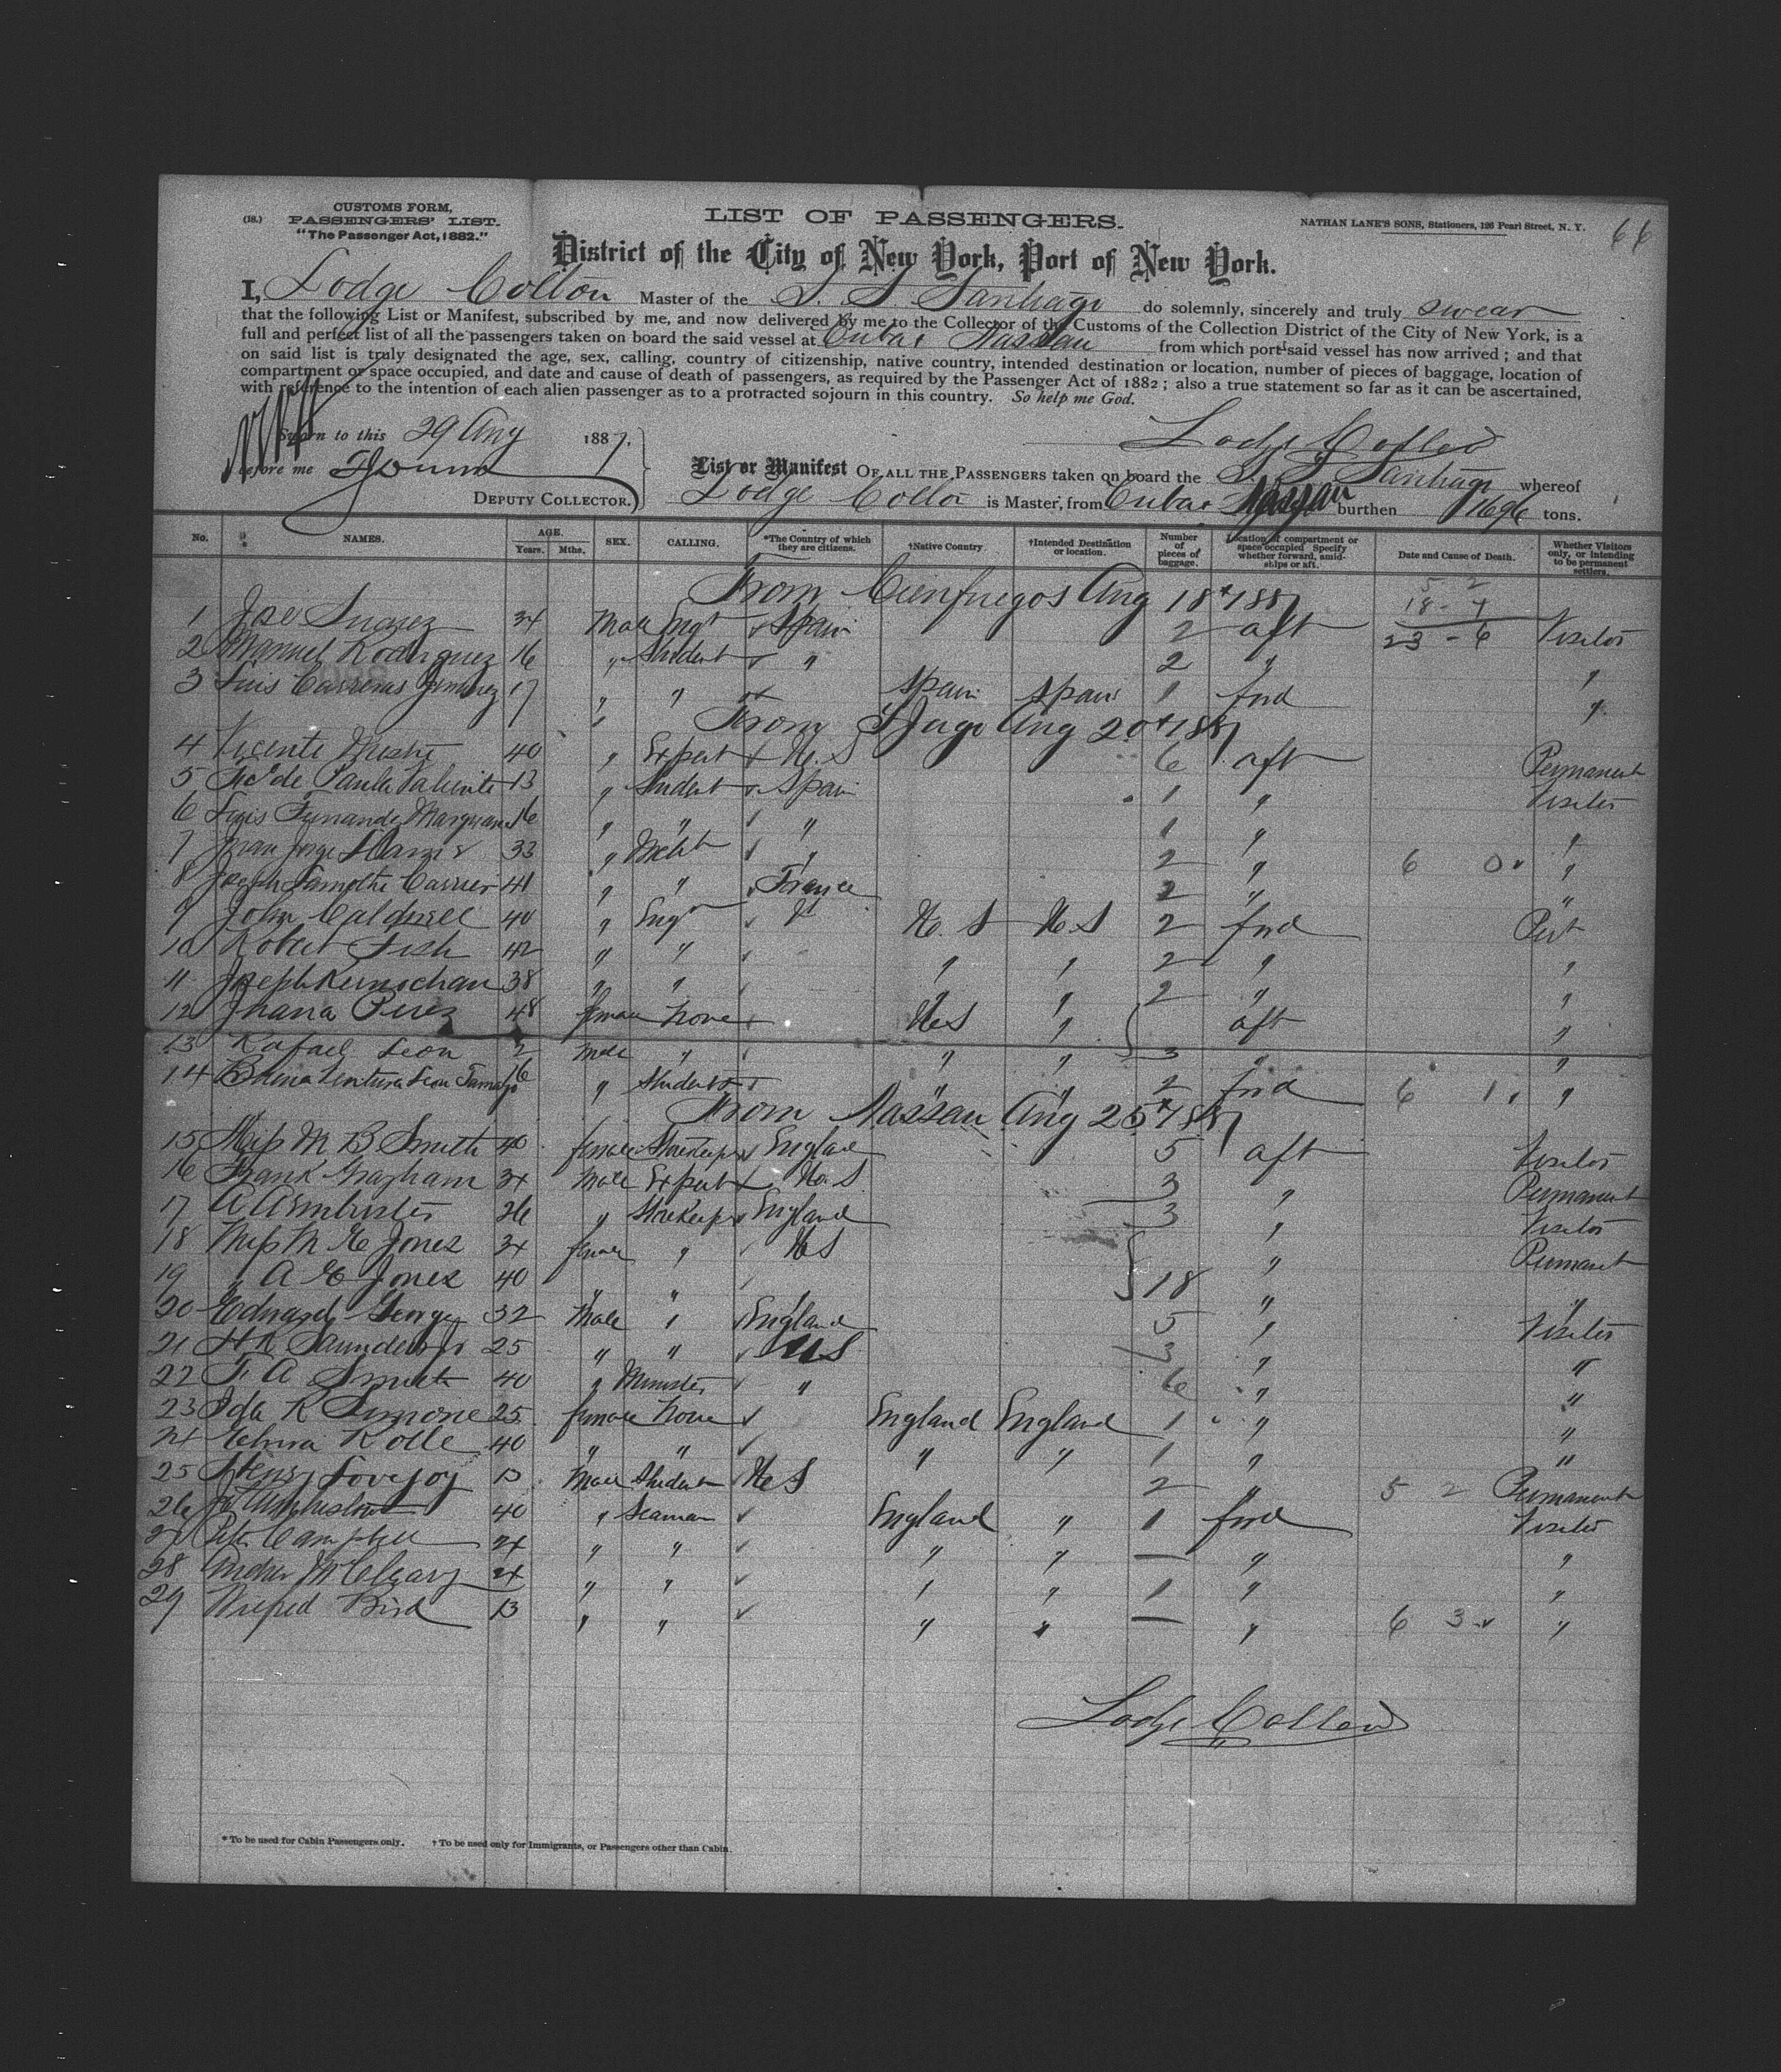 66
CUSTOMS FORM,
(18.) PASSENGERS' LIST.
"The Passenger Act, 1882."
LIST OF PASSENGERS.
NATHAN LANE'S SONS, Stationers, 126 Pearl Street, N. Y.
District of the City of New York, Port of New York.
I, Lodge Colton Master of the S. S. Santiago do solemnly, sincerely and truly swear
that the following List or Manifest, subscribed by me, and now delivered by me to the Collector of the Customs of the Collection District of the City of New York, is a
full and perfect list of all the passengers taken on board the said vessel at Cuba & Nassau from which port said vessel has now arrived; and that
on said list is truly designated the age, sex, calling, country of citizenship, native country, intended destination or location, number of pieces of baggage, location of
compartment or space occupied, and date and cause of death of passengers, as required by the Passenger Act of 1882; also a true statement so far as it can be ascertained,
with reference to the intention of each alien passenger as to a protracted sojourn in this country. So help me God.
Sworn to this 29 Aug 1887.
Lodge Colton
before me
DEPUTY COLLECTOR.
List or Manifest OF ALL THE PASSENGERS taken on board the S. S. Santiago whereof
Lodge Colton is Master, from Cuba & Nassau burthen 1696 tons.
No. NAMES. AGE. Years. Mths. SEX. CALLING. *The Country of which they are citizens. †Native Country. †Intended Destination or location. Number of pieces of baggage. Location of compartment or space occupied Specify whether forward, amidships or aft. Date and Cause of Death. Whether Visitors only, or intending to be permanent settlers.
From Cienfuegos Aug 18th 1887
5 2
18 - 4
23 - 6
1 Jose Suarez 34 Male Engr Spain 2 aft Visitor
2 Manuel Rodriguez 16 " Student " 2 " "
3 Luis Carreras Jiminez 17 " " Spain Spain 1 fwd "
From StJago Aug 20th 1887
4 Vicente 40 " Expert U. S 6 aft Permanent
5 Fco de Paula Valiente 13 " Student Spain 1 " Visitor
6 Luis Fernando 16 " " " 1 " "
7 Juan Jorge 33 " Mcht " 2 " 6 0 "
8 Joseph Lamothe Carrier 41 " " France 2 " "
9 John Caldwell 40 " Engr U. S U. S 2 fwd Pert
10 Robert Fish 42 " " " " 2 " "
11 Joseph Kernochan 38 " " " " 2 " "
12 Juana Perez 48 female None U S " aft "
13 Rafael Leon 2 male " " " 3 " "
14 Buenaventura Leon Tamayo 16 " Student " " 2 fwd 6 1 "
From Nassau Aug 25th 1887
15 Miss M B Smith 40 female Storekeeper England 5 aft Visitor
16 Frank Grayham 34 Male Expert U. S 3 " Permanent
17 A Armbrister 26 " Storekeeper England 3 " Visitor
18 Miss M E Jones 34 female " U S " Permanent
19 " A E Jones 40 " " " 18 " "
20 Edward George 32 Male " England 5 " Visitor
21 H R Saunders 25 " " U S 3 " "
22 F. A Smith 40 " Minister " 6 " "
23 Ida K Simone 25 female None England England 1 " "
24 Elvira Rolle 40 " " " " 1 " "
25 Henry Lovejoy 13 Male Student U S 2 " 5 2 Permanent
26 40 " Seaman England " 1 fwd Visitor
27 Peter Campbell 24 " " " " — " "
28 Andrew McCleary 24 " " " " 1 " "
29 Wilfred Bird 13 " " " " — " 6 3 "
Lodge Colton
* To be used for Cabin Passengers only. † To be used only for Immigrants, or Passengers other than Cabin.